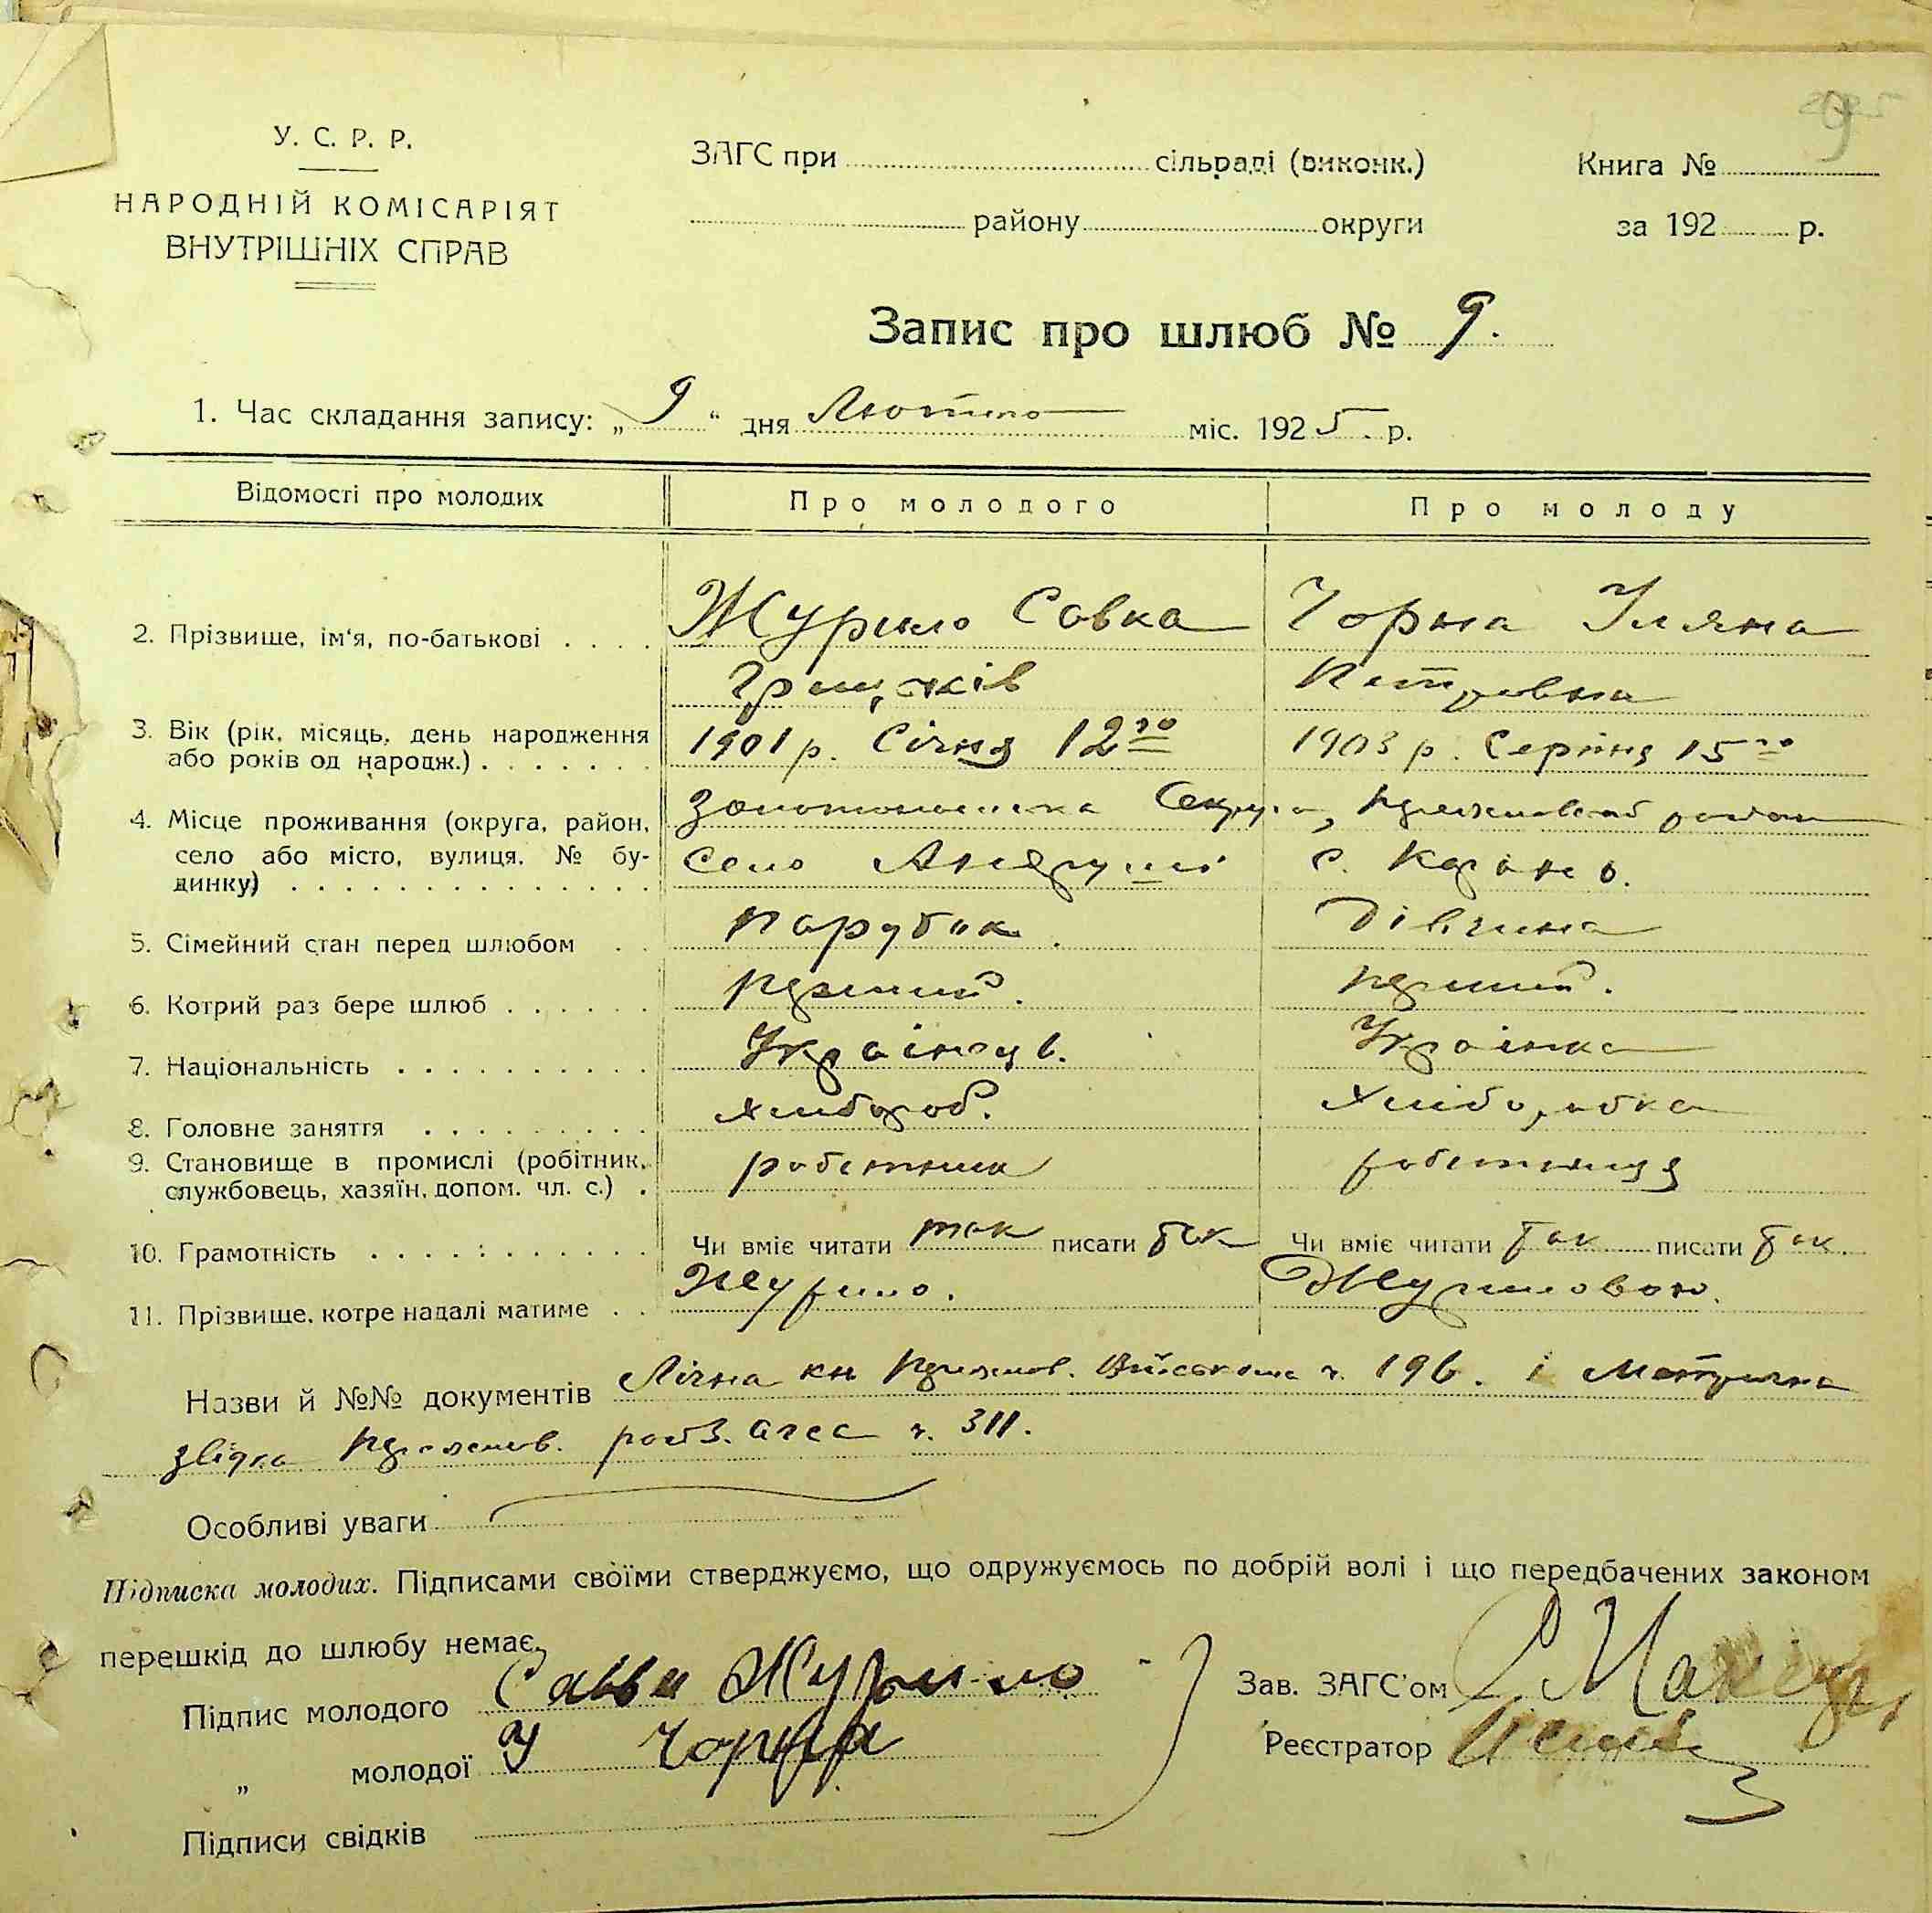 9
У. С. Р. Р.
НАРОДНІЙ КОМІСАРІЯТ
ВНУТРІШНІХ СПРАВ
ЗАГС при сільраді (виконк.)
району округи
Книга №
за 192 р.
Запис про шлюб № 9.
1. Час складання запису: „9“ дня Лютого міс. 1925 р.
Відомості про молодих Про молодого Про молоду
2. Прізвище, ім'я, по-батькові . . . . Журило Савка Чорна Уляна
Грицьків Петровна
3. Вік (рік, місяць, день народження 1901 р. Січня 12го 1903 р. Серпня 15го
або років од народж.) . . . . . . .
4. Місце проживання (округа, район, Золотоноська Округа,
село або місто, вулиця, № бу- село Андруші с. Карань.
динку) . . . . . . . . . . . . . . .
5. Сімейний стан перед шлюбом . . парубок. Дівчина
6. Котрий раз бере шлюб . . . . . . перший. перший.
7. Національність . . . . . . . . . . Українець. Українка
8. Головне заняття . . . . . . . . . хлібороб. хліборобка
9. Становище в промислі (робітник, робітник робітниця
службовець, хазяїн, допом. чл. с.) .
10. Грамотність . . . . . . . . . . . Чи вміє читати так писати так Чи вміє читати так писати так.
11. Прізвище, котре надалі матиме . . Журило. Журиловою.
Назви й №№ документів Лічна кн ч. 196. і Метрична
ч. 311.
Особливі уваги
Підписка молодих. Підписами своїми стверджуємо, що одружуємось по добрій волі і що передбачених законом
перешкід до шлюбу немає.
Підпис молодого Савка Журило
„ молодої У Чорна
Підписи свідків
Зав. ЗАГС'ом
Реєстратор